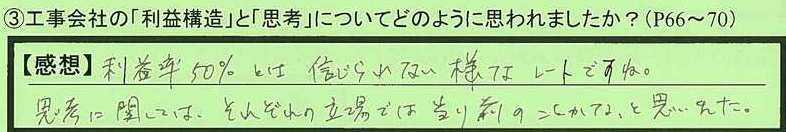 ③工事会社の「利益構造」と「思考」についてどのように思われましたか？(P66～70)
【感想】利益率50%とは信じられない様なレートですね。
思考に関しては、それぞれの立場では当り前のことかな、と思いました。